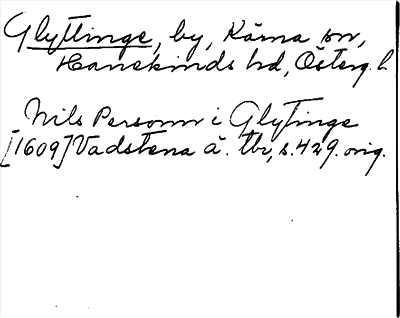 Glyttinge, by, Kärna sn,
Hanekinds hd, Österg. l.
Nils Personn i Glytinge
[1609] Vadstena ä. tbr, s. 429. orig.